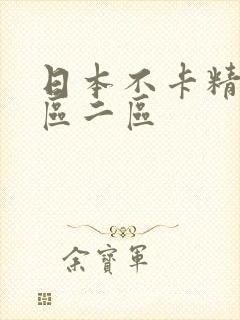 日本不卡精
區二區
余寶軍